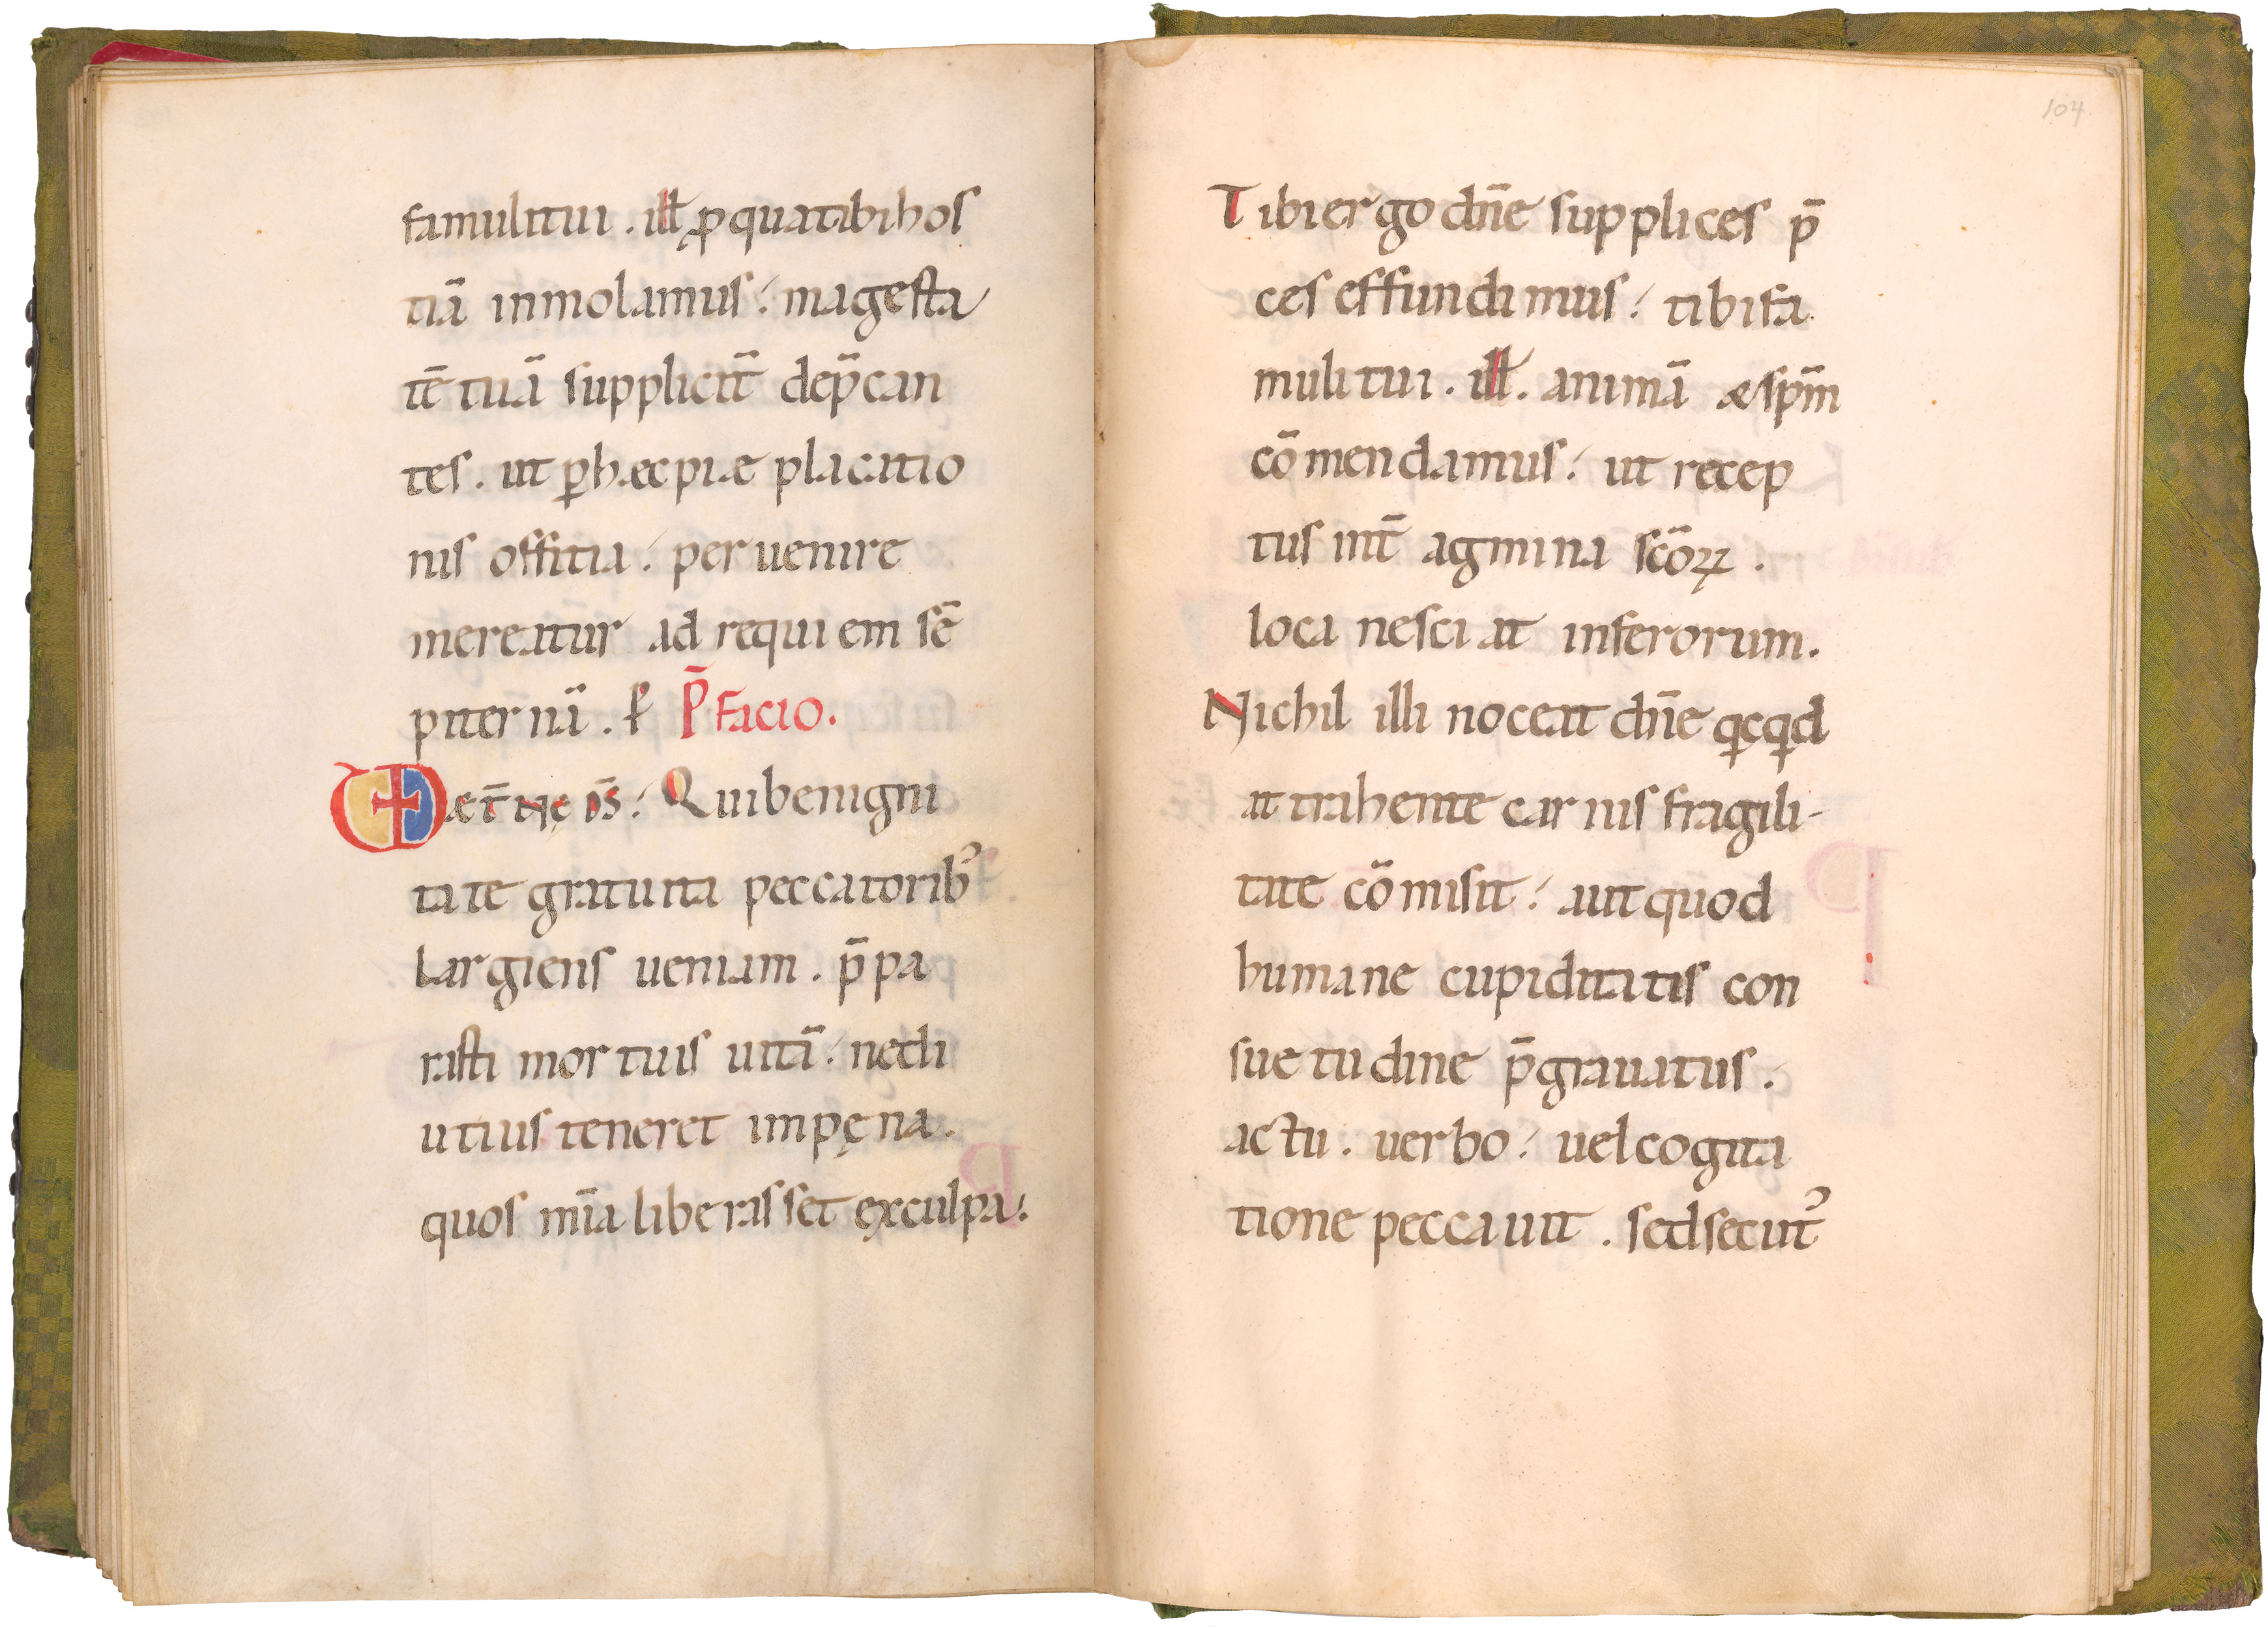 famuli tui . ill̵ ꝓ qua tibi hos
tiā inmolamus ⹎ magesta
tē tuā supplicit̄ dep̄can
tes . ut ꝑ hæc piæ placatio
nis offitia ⹎ peruenire
mereatur ad requiem sē
piternā . ꝑ P̄facio.
VD æt̄ne d̄s ⹎ Qui benigni
tate gratuita peccatorib᾿
largiens ueniam . p̄pa
rasti mortuis uitā ⹎ ne di
utius teneret im pęna .
quos mīa liberasset ex culpa ⹎
104
Tibi ergo dn̄e supplices p̄
ces effundimus ⹎ tibi fa
muli tui . ill̵ . animā & sp̄m
cōmendamus ⹎ ut recep
tus int̄ agmina sc̄oꝝ .
loca nesciat inferorum .
Nichil illi noceat dn̄e qͥcqͥd
attrahente carnis fragili-
tate cōmisit ⹎ aut quod
humane cupiditatis con
suetudine p̄grauatus .
actu . uerbo ⹎ uel cogita
tione peccauit . sed secut᾿